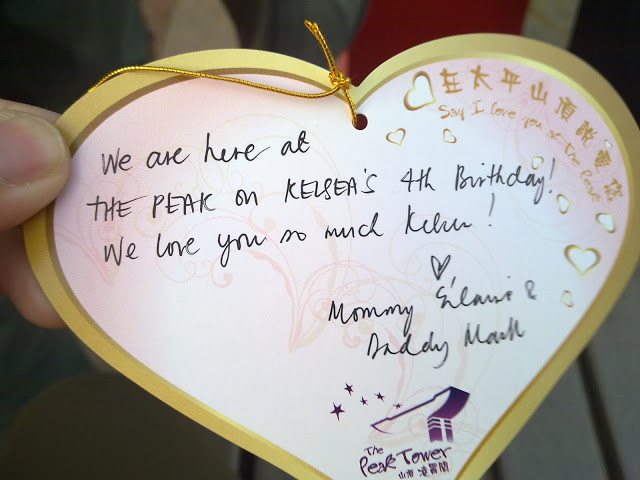 在太平山頂說愛你
Say I love you at the Peak
We are here at
THE PEAK on KELSEA'S 4th Birthday!
We love you so much Kelsea!
Mommy Elaine &
Daddy Mark
The
Peak Tower
山頂 凌霄閣